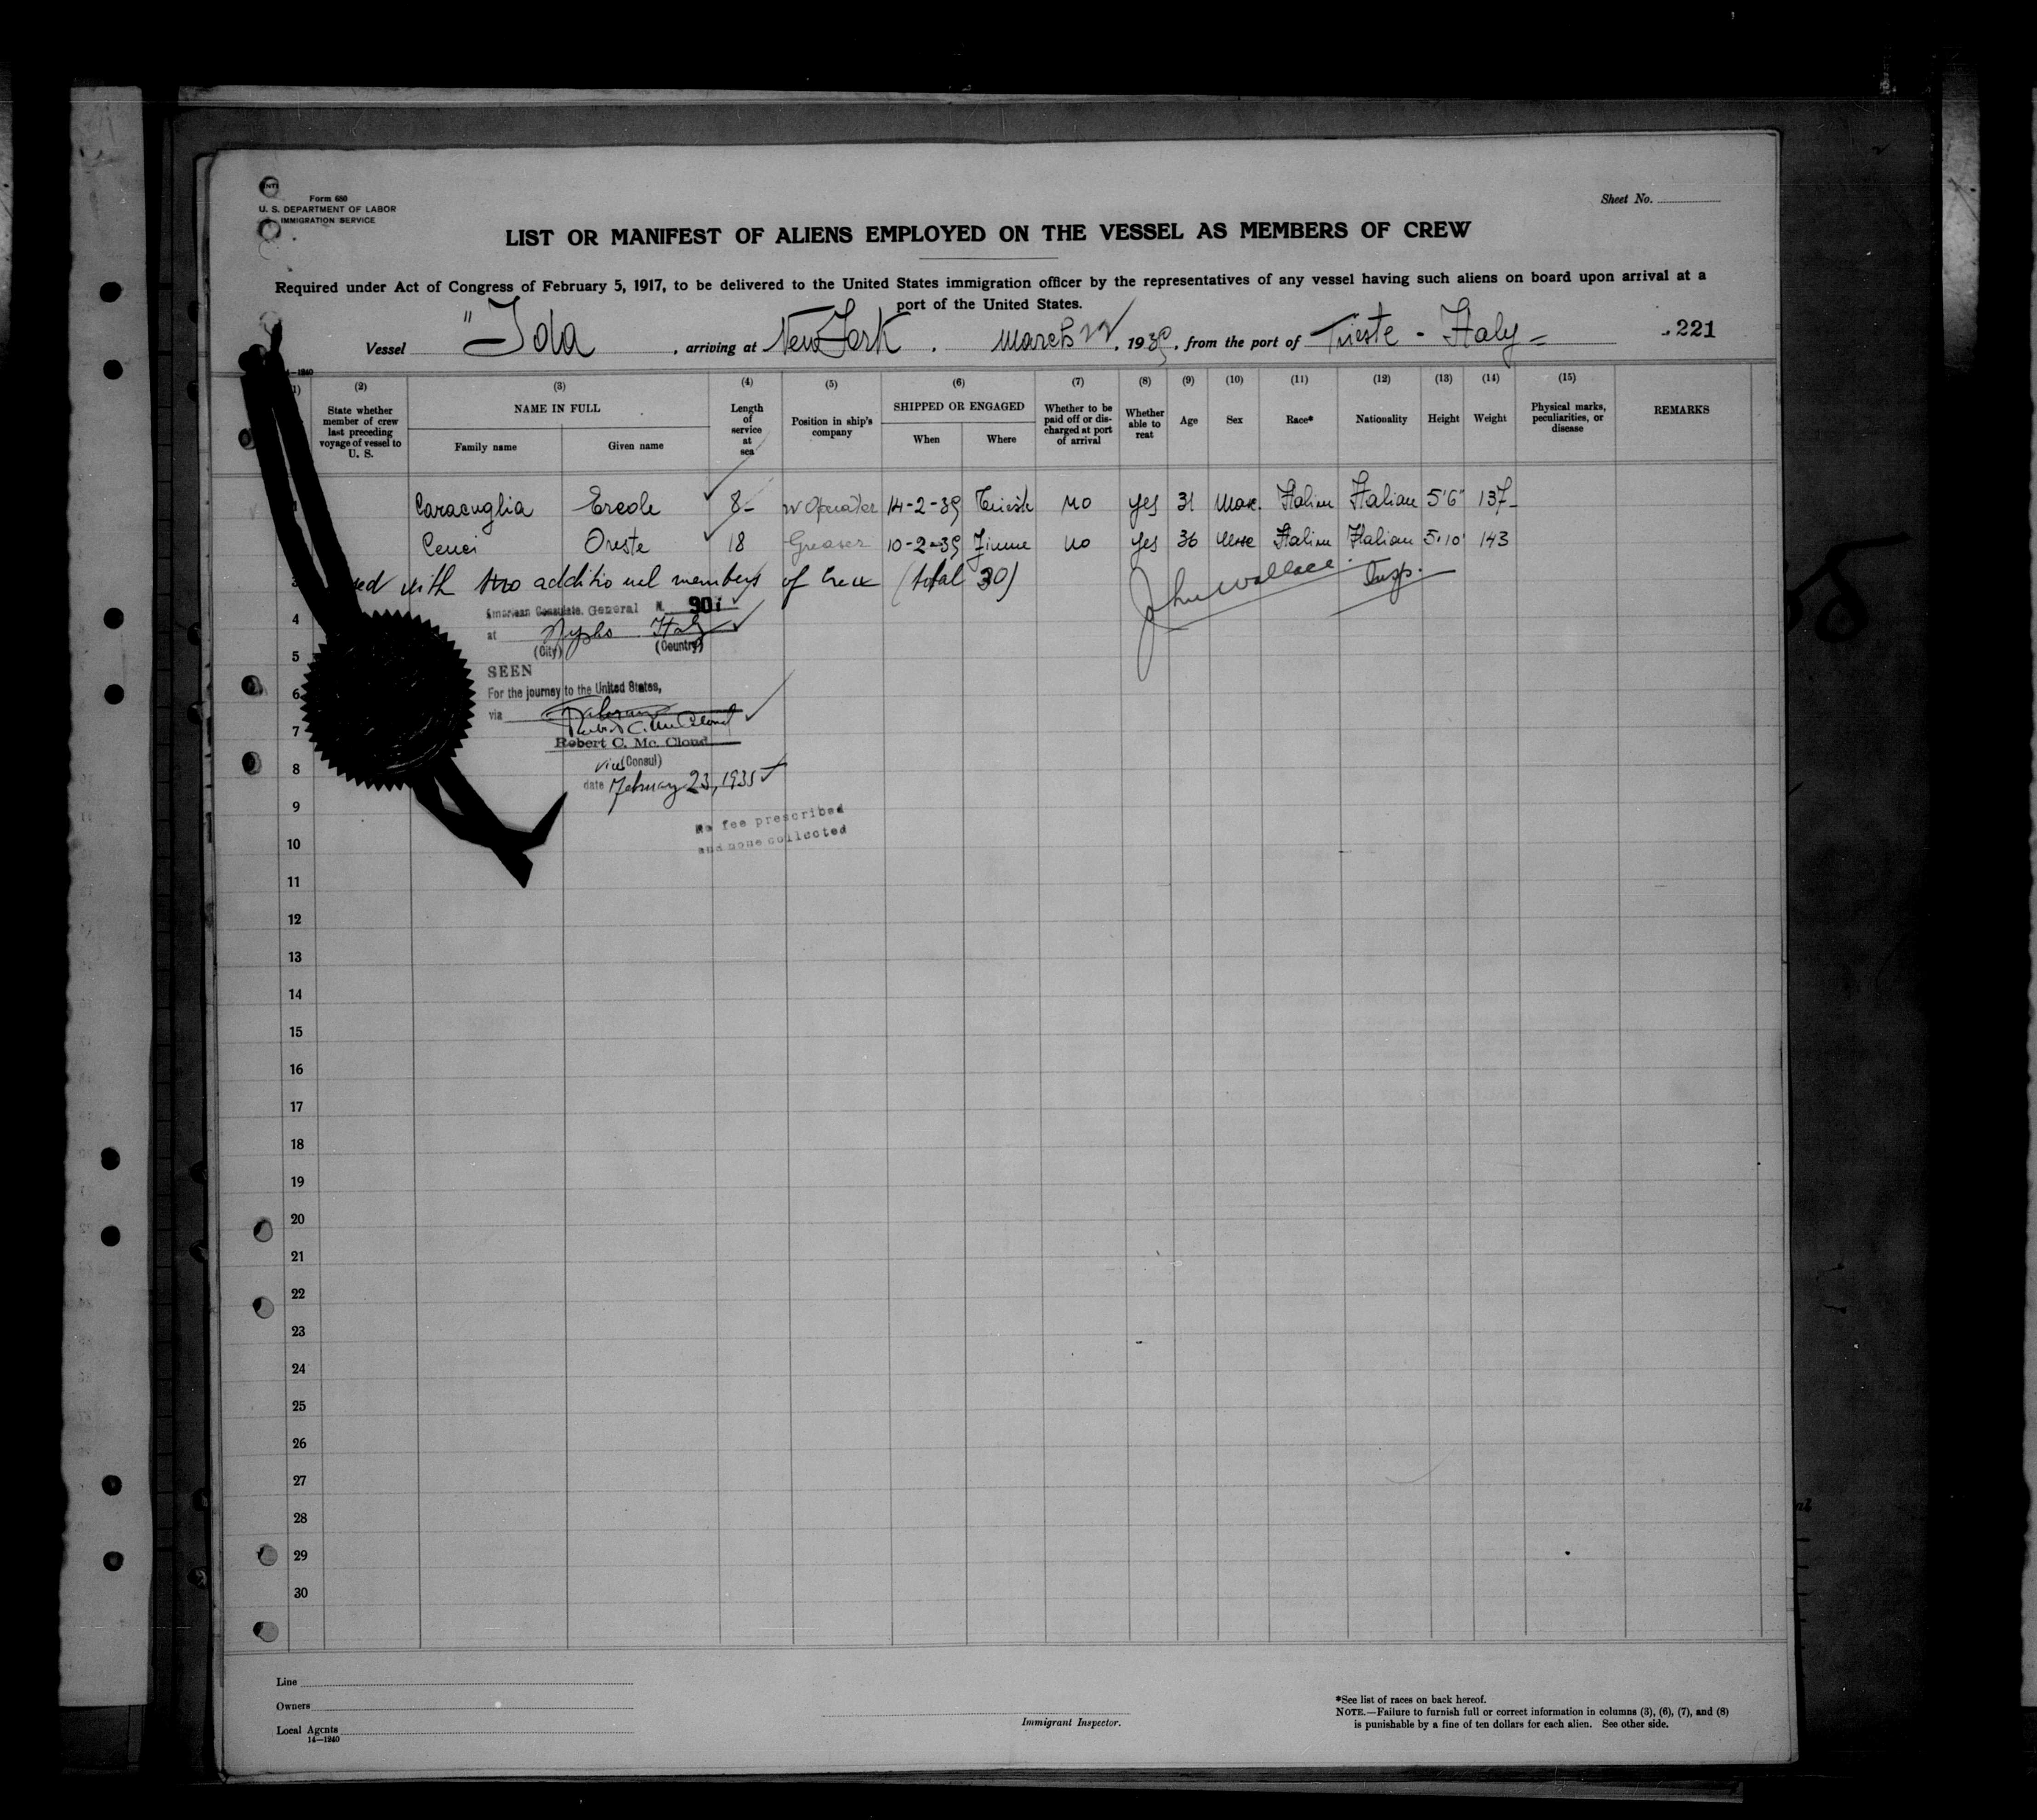 Form 680
U. S. DEPARTMENT OF LABOR
IMMIGRATION SERVICE
Sheet No.
LIST OR MANIFEST OF ALIENS EMPLOYED ON THE VESSEL AS MEMBERS OF CREW
Required under Act of Congress of February 5, 1917, to be delivered to the United States immigration officer by the representatives of any vessel having such aliens on board upon arrival at a
port of the United States.
Vessel "Ida , arriving at New York . March , 1935, from the port of Trieste - Italy = 221
(2) (3) (4) (5) (6) (7) (8) (9) (10) (11) (12) (13) (14) (15)
State whether member of crew last preceding voyage of vessel to U. S.
NAME IN FULL
Family name Given name
Length of service at sea
Position in ship's company
SHIPPED OR ENGAGED
When Where
Whether to be paid off or discharged at port of arrival
Whether able to read
Age Sex Race* Nationality Height Weight
Physical marks, peculiarities, or disease
REMARKS
1 Caracuglia Ercole 8- W Operater 14-2-35 Trieste no yes 31 Italian Italian 5'6" 137-
Cenci Oreste 18 Greaser 10-2-35 Fiume no yes 36 Italian Italian 5'10" 143
3 with two additional members of Crew (total 30) John Wallace Insp.
4
American Consulate General N. 901
at Italy
(City) (Country)
5
SEEN
6
For the journey to the United States,
via
7
Robert C. McCloud
Robert C. Mc. Cloud
8
Vice (Consul)
date February 23, 1935
9
No fee prescribed
and none collected
10
11
12
13
14
15
16
17
18
19
20
21
22
23
24
25
26
27
28
29
30
Line
Owners
Local Agents
14—1240
Immigrant Inspector.
*See list of races on back hereof.
NOTE.—Failure to furnish full or correct information in columns (3), (6), (7), and (8)
is punishable by a fine of ten dollars for each alien. See other side.